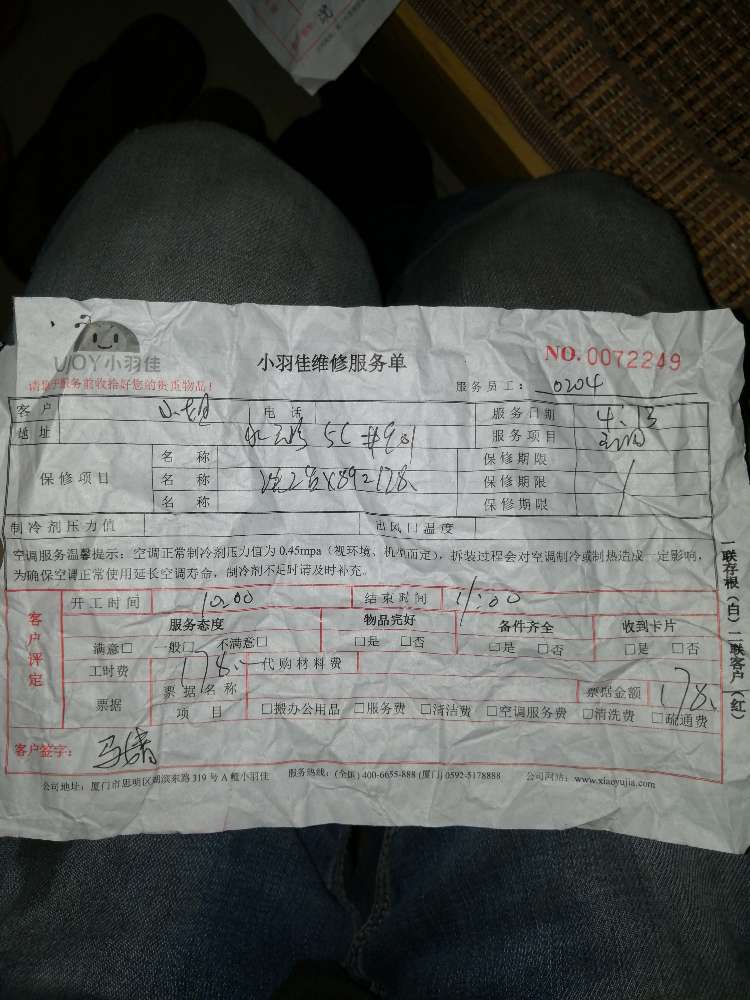 UJOY小羽佳
小羽佳维修服务单
NO. 0072249
请您于服务前收拾好您的贵重物品!
服务员工: 0204
客户 电话 服务日期 4.13
地址 5C #901 服务项目
保修项目 名称 洗2台×89=178. 保修期限
名称 保修期限
名称 保修期限
制冷剂压力值 出风口温度
空调服务温馨提示: 空调正常制冷剂压力值为 0.45mpa (视环境、机型而定), 拆装过程会对空调制冷或制热造成一定影响,
为确保空调正常使用延长空调寿命, 制冷剂不足时请及时补充。
开工时间 10:00 结束时间 11:00
客户评定
服务态度 物品完好 备件齐全 收到卡片
满意□ 一般□ 不满意□ □是 □否 □是 □否 □是 □否
工时费 178. 代购材料费
票据 票据名称 票据金额 178.
项目 □搬办公用品 □服务费 □清洁费 □空调服务费 □清洗费 □疏通费
客户签字:
公司地址: 厦门市思明区湖滨东路 319 号 A 幢小羽佳 服务热线: (全国) 400-6655-888 (厦门) 0592-5178888 公司网站: www.xiaoyujia.com
一联存根(白) 二联客户(红)